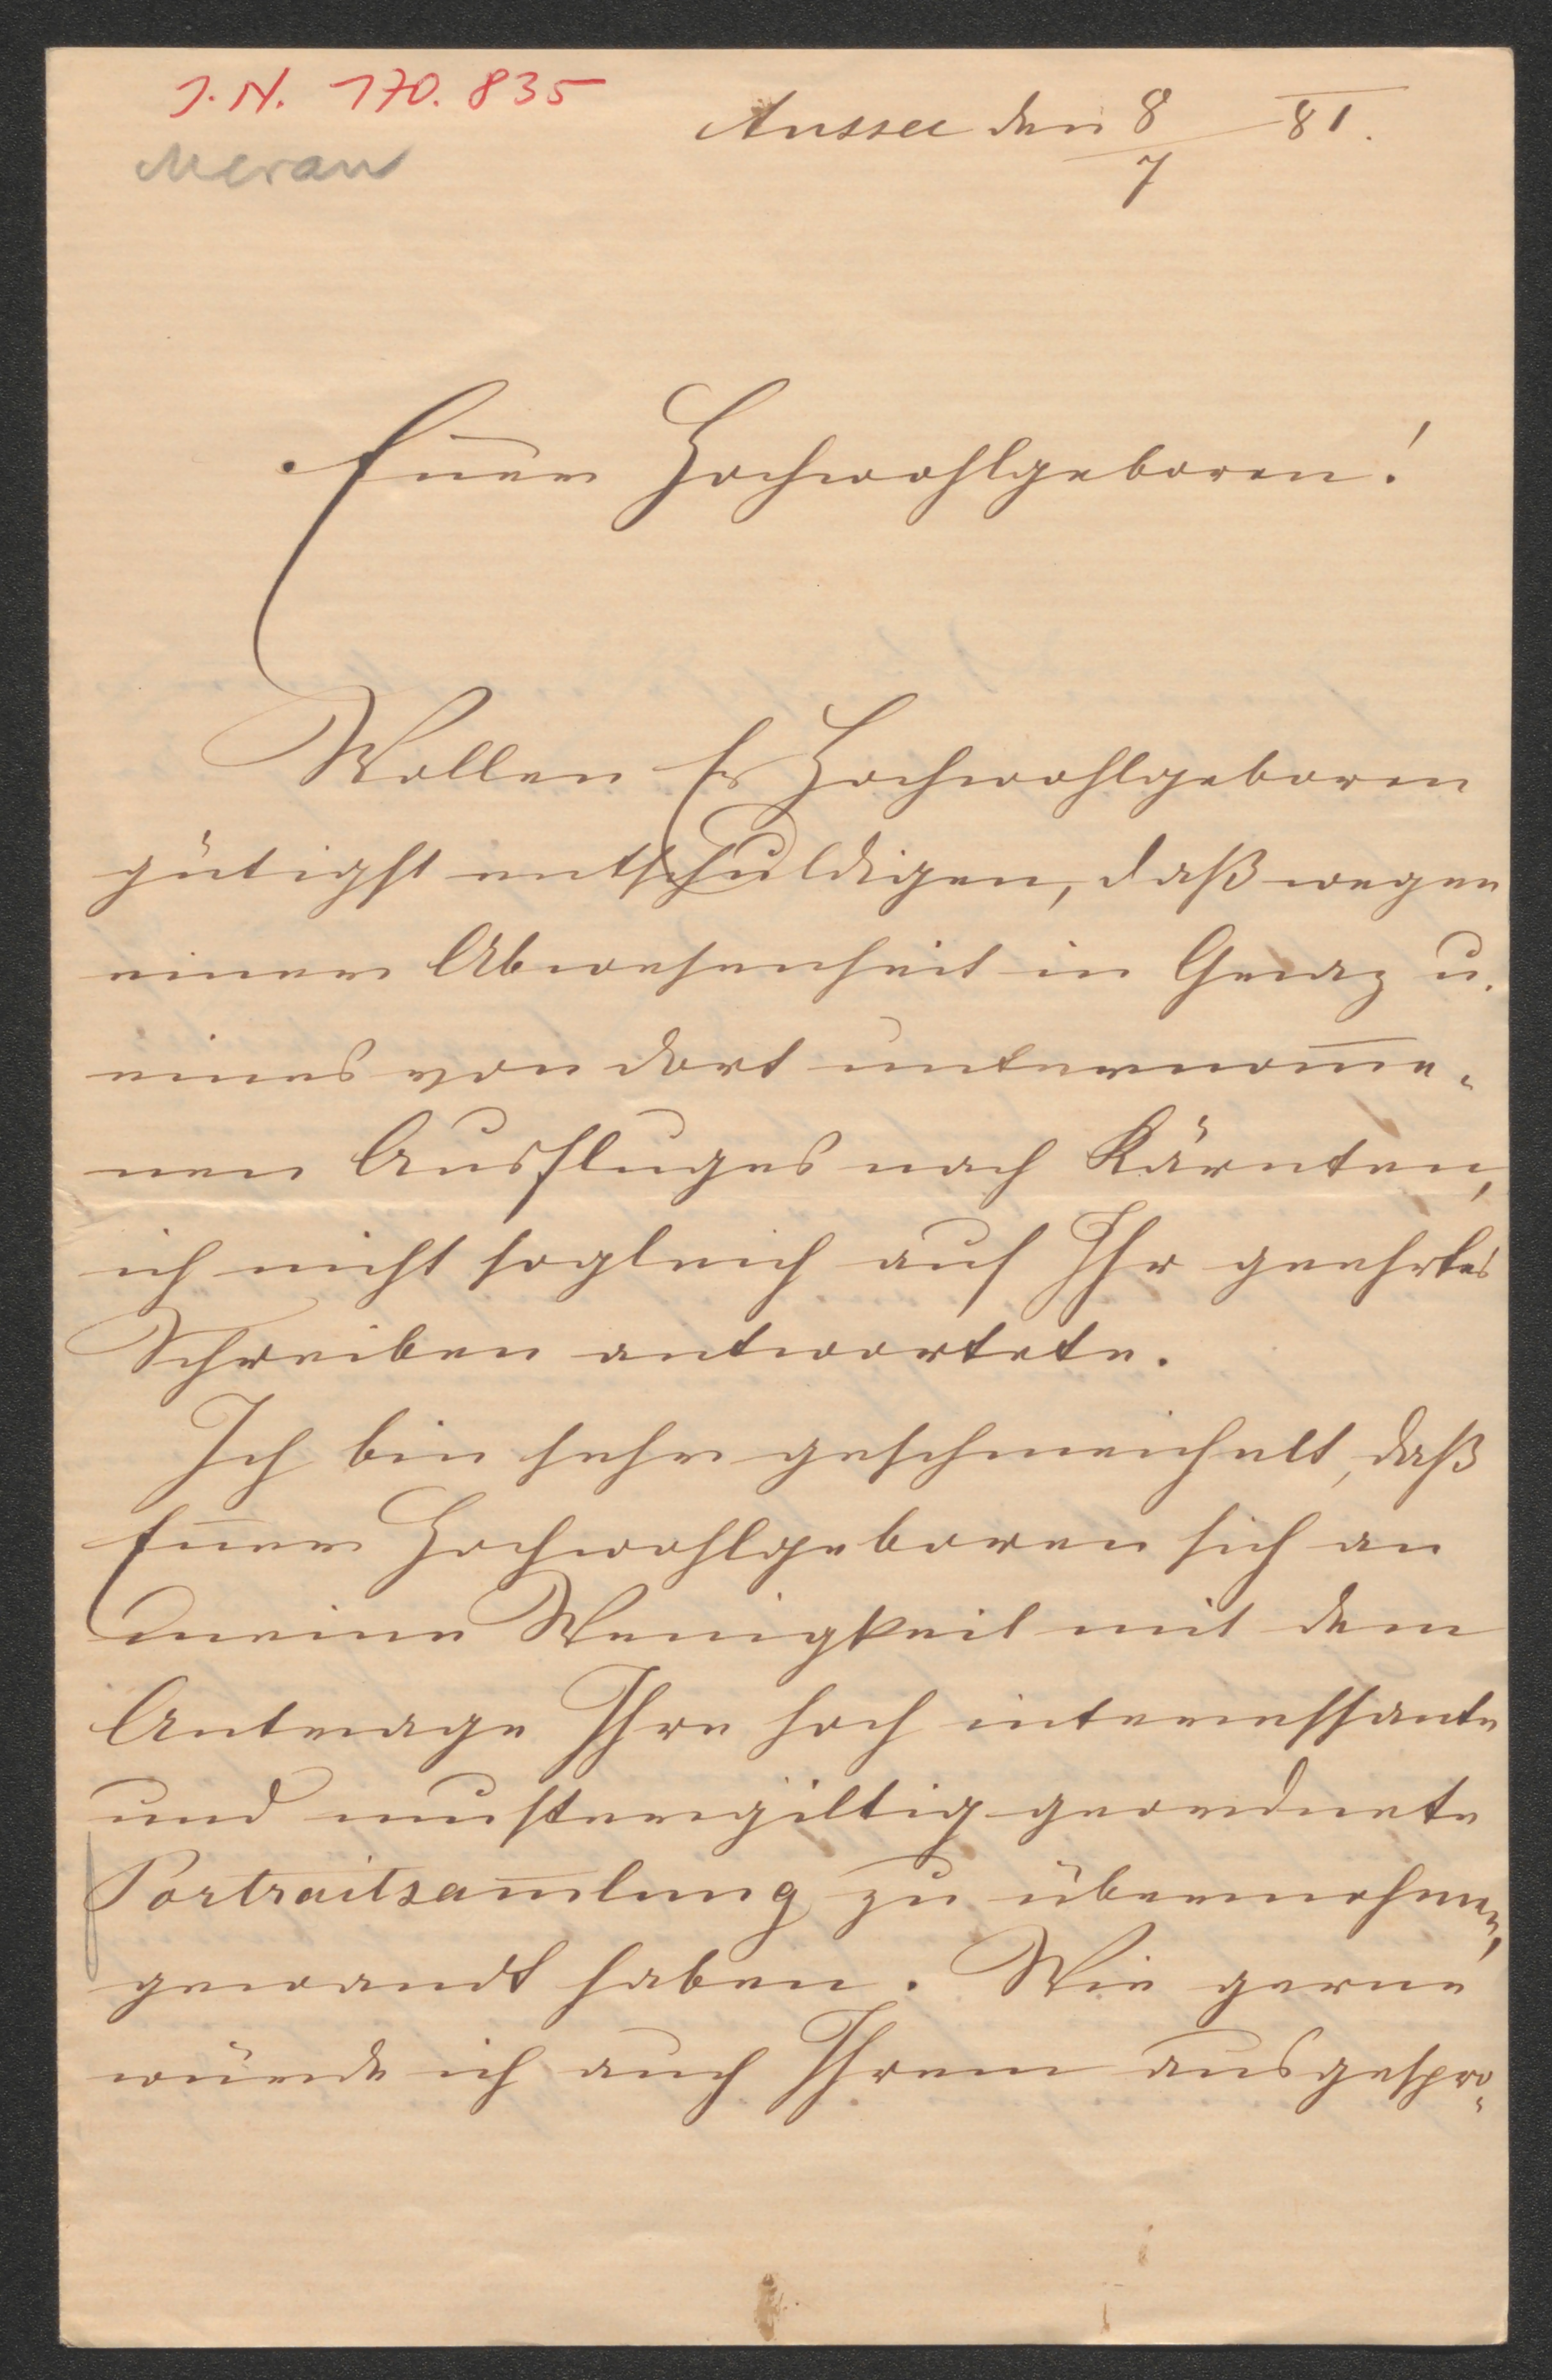 J.N. 170.835
Meran
Aussee den 8/7 81.
Euer Hochwohlgeboren!
Wollen Er Hochwohlgeboren
gütigst entschuldigen, daß wegen
einer Abwesenheit in Graz u.
eines von dort unternom̅e-
nen Ausfluges nach Kärnten,
ich nicht sogleich auf Ihr geehrtes
Schreiben antwortete.
Ich bin sehr geschmeichelt, daß
Euer Hochwohlgeboren sich an
meine Wenigkeit mit dem
Antrage Ihre hoch interessante
und mustergiltig geordnete
Portraitsam̅lung zu übernehmen,
gewandt haben. Wie gerne
würde ich auch Ihrem ausgespro-